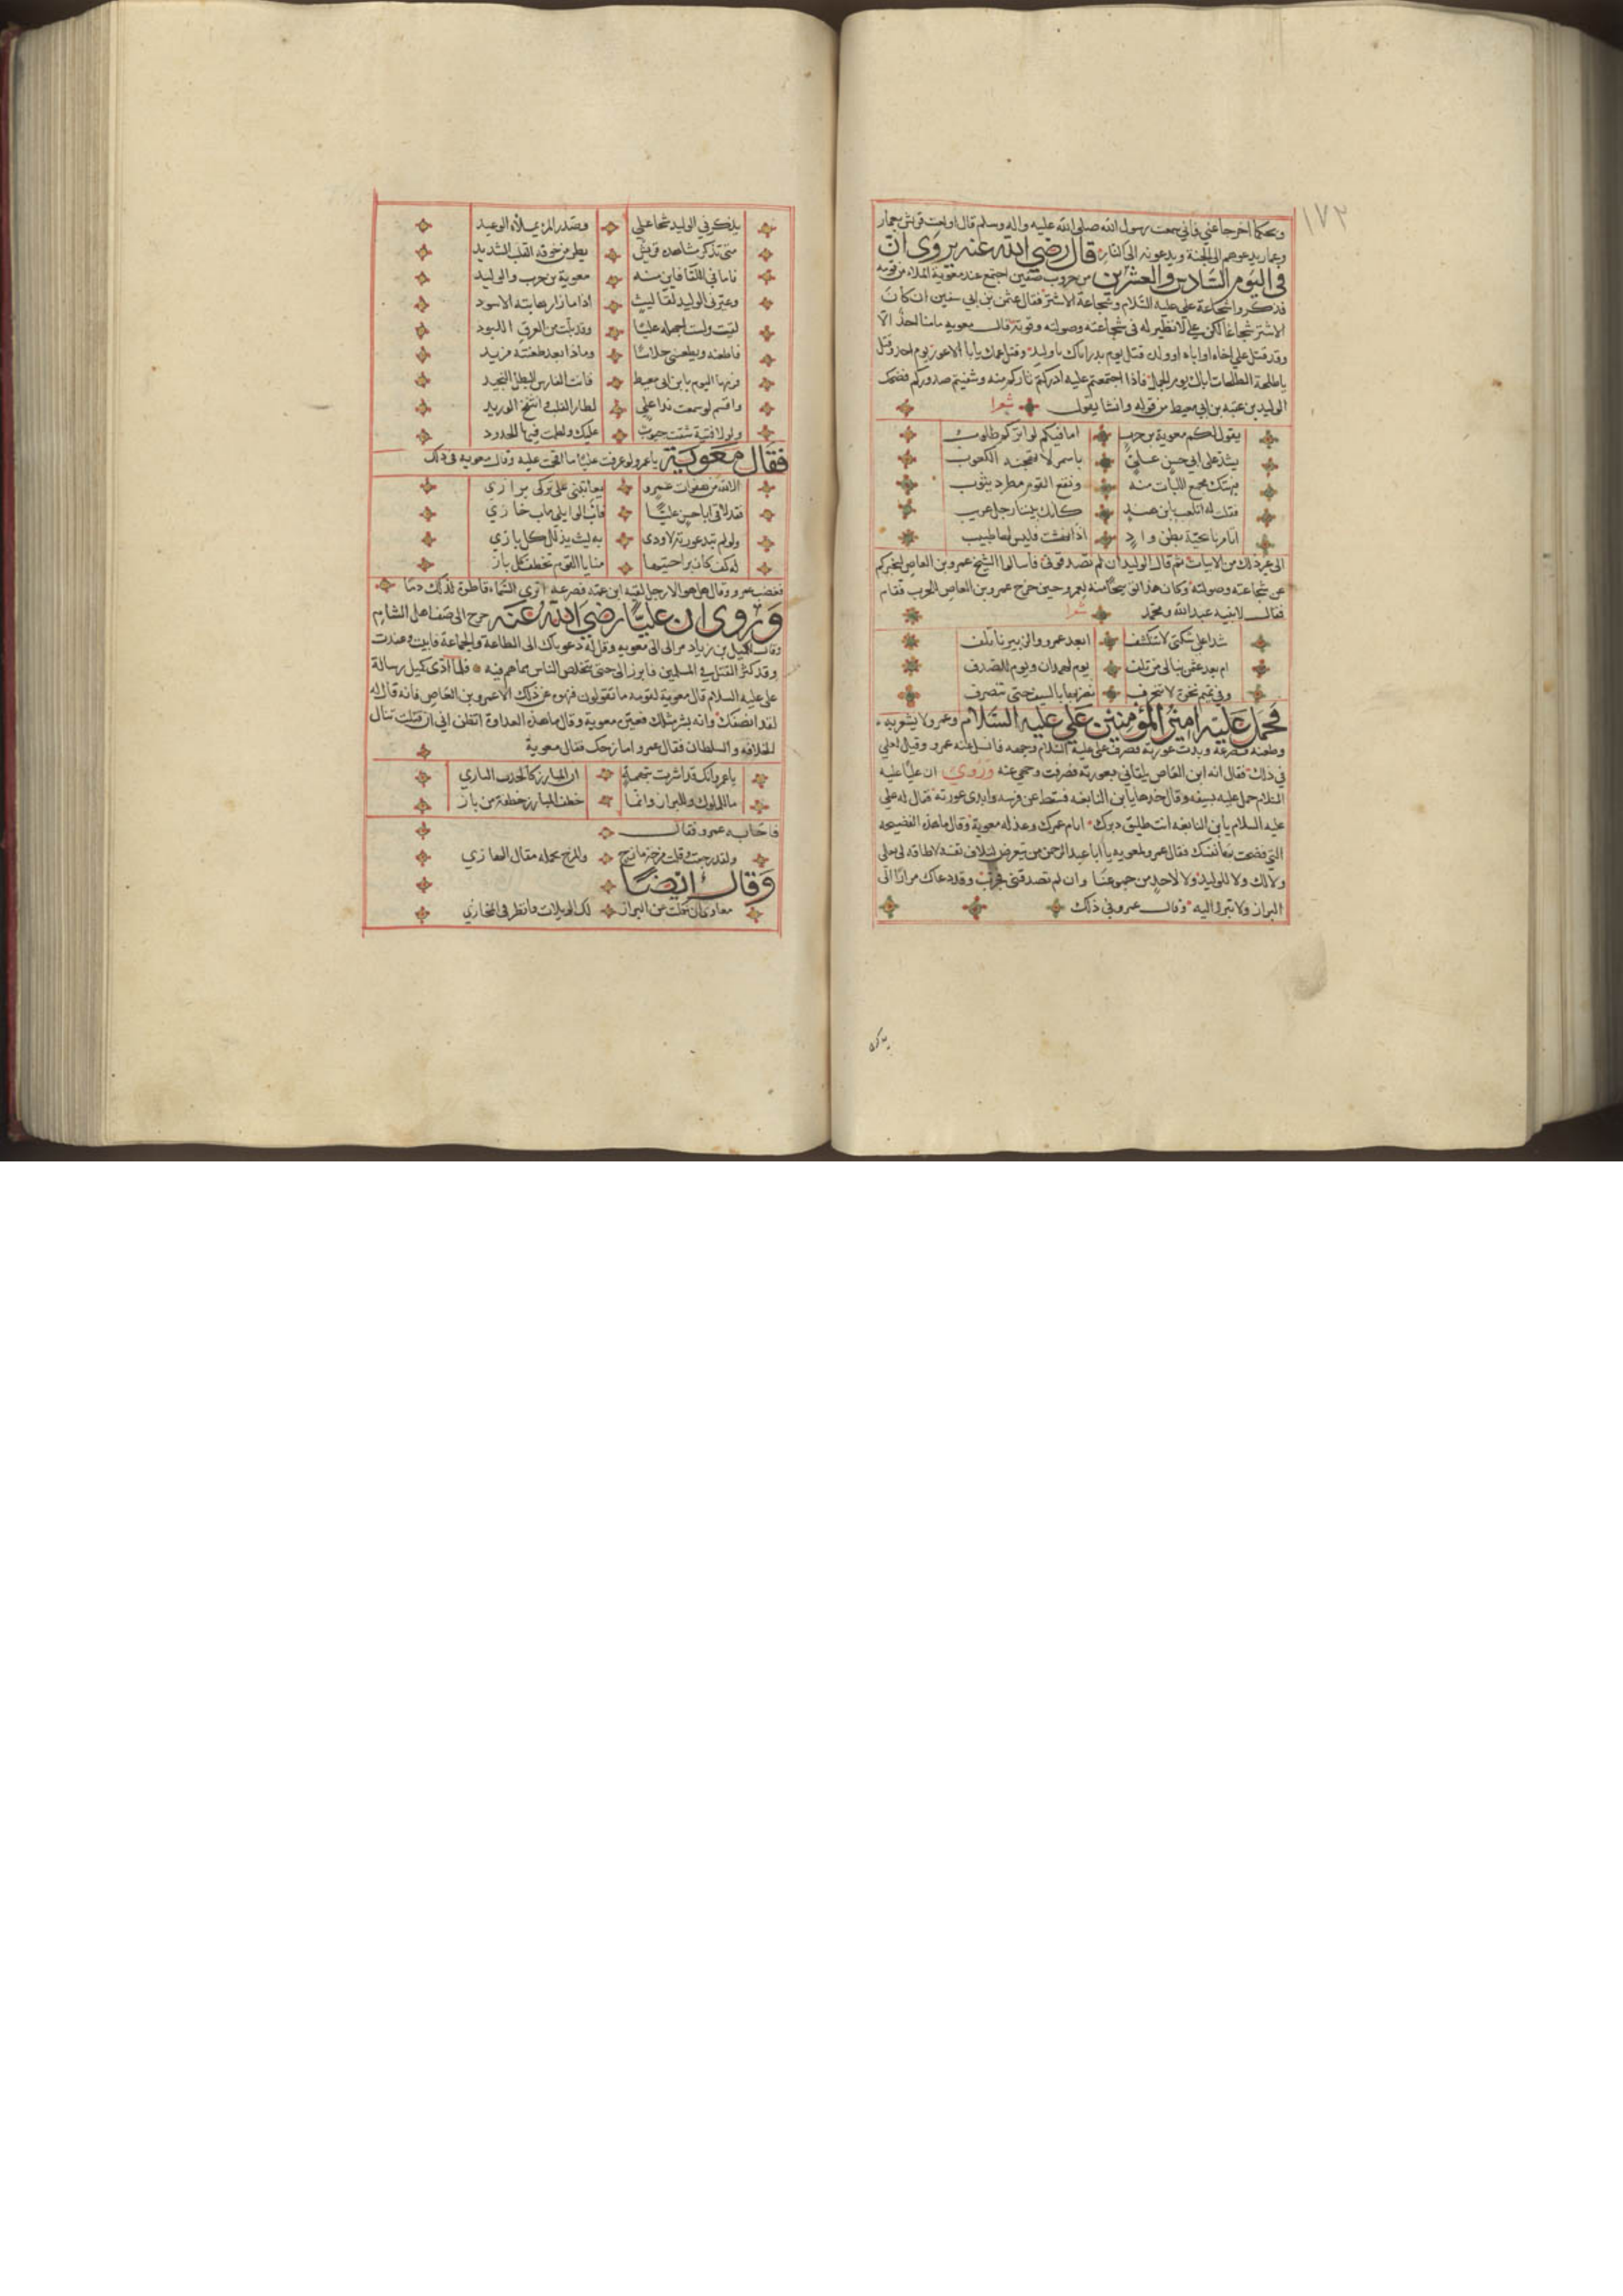 ١٧٢
ويحكما اخرجا عني فاني سمعت رسول الله صلى الله عليه واله وسلم قال اولعت قريش بعمار
وعمار يدعوهم الى الجنة ويدعونه الى النار قال رضي الله عنه يروى ان
في اليوم السادس والعشرين من حروب صفين اجتمع عند معوية الملاء من قومه
فذكروا شجاعة علي عليه السلام وشجاعة الاشتر فقال عتبة بن ابي سفين ان كان
الاشتر شجاعا لكن علي لا نظير له في شجاعته وصولته وقوته قال معوية ما منا احد الا
وقد قتل علي اخاه او اباه او ولده قتل يوم بدر اباك يا وليد وقتل عمك يا ابا الاعور يوم احد وقتل
يا طلحة الطلحات اباك يوم الجمل فاذا اجتمعتم عليه ادركتم ثاركم منه وشفيتم صدوركم فضحك
الوليد بن عقبه بن ابي معيط من قوله وانشا يقول شعرا
يقول لكم معوية بن حرب اما فيكم لواتركم طلوب
يشد على ابي حسن علي باسمر لا تهجنه الكعوب
فيهتك مجمع اللبات منه ونقع القوم مطرد يثوب
فقلت له اتلعب يابن هند كانك بيننا رجل غريب
اتامرنا بحية بطن واد اذا نهشت فليس لها طبيب
الى غير ذلك من الابيات ثم قال الوليد ان لم تصدقوني فاسالوا الشيخ عمرو بن العاص ليخبركم
عن شجاعته وصولته وكان هذا توبيخا منه لعمرو حين خرج عمرو بن العاص للحرب فقام
فقال لابنيه عبد الله ومحمد شعرا
شدا علي شكتي لا تنكشف ابعد عمرو والزبير ناتلف
ام بعد عثمن نبالي من تلف يوم لهمدان ويوم للصدف
وفي تميم نخوة لا تنحرف نضربها بالسيف حتى تنصرف
فحمل عليه امير المؤمنين علي عليه السلام وعمرو لا يشعر به
وطعنه فصرعه وبدت عورته فصرف علي عليه السلام وجهه فانسل عنه عمرو وقيل لعلي
في ذلك فقال انه ابن العاص يلقاني بعورته فصرفت وجهي عنه وروي ان عليا عليه
السلام حمل عليه بسيفه وقال خدها يا بن النابغه فسقط عن فرسه وابدى عورته فقال له علي
عليه السلام يا بن النابغه انت طليق دبرك ايام عمرك وعذله معوية وقال ما هذه الفضيحه
التي فضحت بها نفسك فقال عمرو لمعويه يا ابا عبد الرحمن من يتعرض لتلاف نفسه لا طاقه لي بعلي
ولا لك ولا للوليد ولا لاحد من جمعنا وان لم تصدقني فجرب وقد دعاك مرارا الى
البراز ولا تبرز اليه وقال عمرو في ذلك
يذكرني الوليد شجا علي وصدر المرء يملأه الوعيد
متى تذكر مشاهده قريش يطر من خوفه القلب الشديد
فاما في اللقا فاين منه معوية بن حرب والوليد
وعيرني الوليد لقا ليث اذا ما زار هابته الاسود
لقيت ولست اجهله عليا وقد بلت من العرق اللبود
فاطعنه ويطعنني خلاسا وماذا بعد طعنته مزيد
فرمها اليوم يا بن ابي معيط فانت الفارس البطل النجيد
واقسم لو سمعت ندا علي لطار القلب وانتفخ الوريد
ولو لاقيته شقت جيوب عليك ولطمت فيها الخدود
فقال معوية يا عمرو لو عرفت عليا ما اقتحمت عليه وقال معويه في ذلك
الا لله من هفوات عمرو يعاتبني على تركي برازي
فقد لاقى ابا حسن عليا فاب الوايلي ماب خازي
ولو لم تبد عورته لاودى به ليث يذلل كل بازي
له كف كان براحتيها منايا القوم تخطف كل باز
فغضب عمرو وقال هل هو الا رجل لقيه ابن عمه فصرعه اترى السماء قاطرة لذلك دما
وروى ان عليا رضي الله عنه خرج الى صف اهل الشام
وقال لكميل بن زياد مر الى الى معويه وقل له دعوناك الى الطاعة والجماعة فابيت وعندت
وقد كثر القتل في المسلمين فابرز الي حتى يتخلص الناس مما هم فيه فلما ادى كميل رسالة
علي عليه السلام قال معوية لقومه ما تقولون فنهوه عن ذلك الا عمرو بن العاص فانه قال له
لقد انصفك وانه بشر مثلك فعبس معوية وقال ما هذه العداوة اتظن اني ان قتلت تنال
الخلافه والسلطان فقال عمرو امازحك فقال معوية
يا عمرو انك قد اشرت بتهمة ان المبارز كالجدي النازي
ما للملوك وللبراز وانما خطف المبارز خطفة من باز
فاجابه عمرو فقال
ولقد رجعت وقلت مزحة مازح والمزح يحمله مقال الهازي
وقال ايضا
معاوي ان نكلت عن البراز لك الويلات فانظر في المخازي
يذكرني